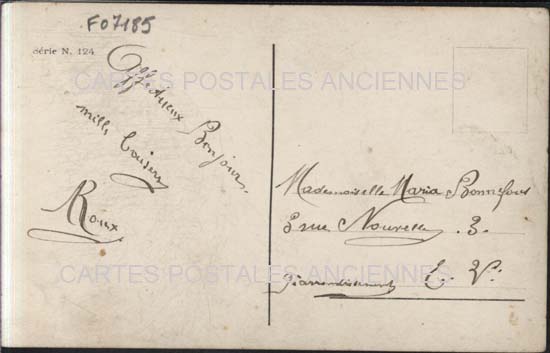 F07185
série N. 124
CARTES POSTALES ANCIENNES
Affectueux Bonjour
mille baisers
Roux
Mademoiselle Maria Bonnefous
3 rue Nouvelle 3.
arrondissement E. V.
CARTES POSTALES ANCIENNES